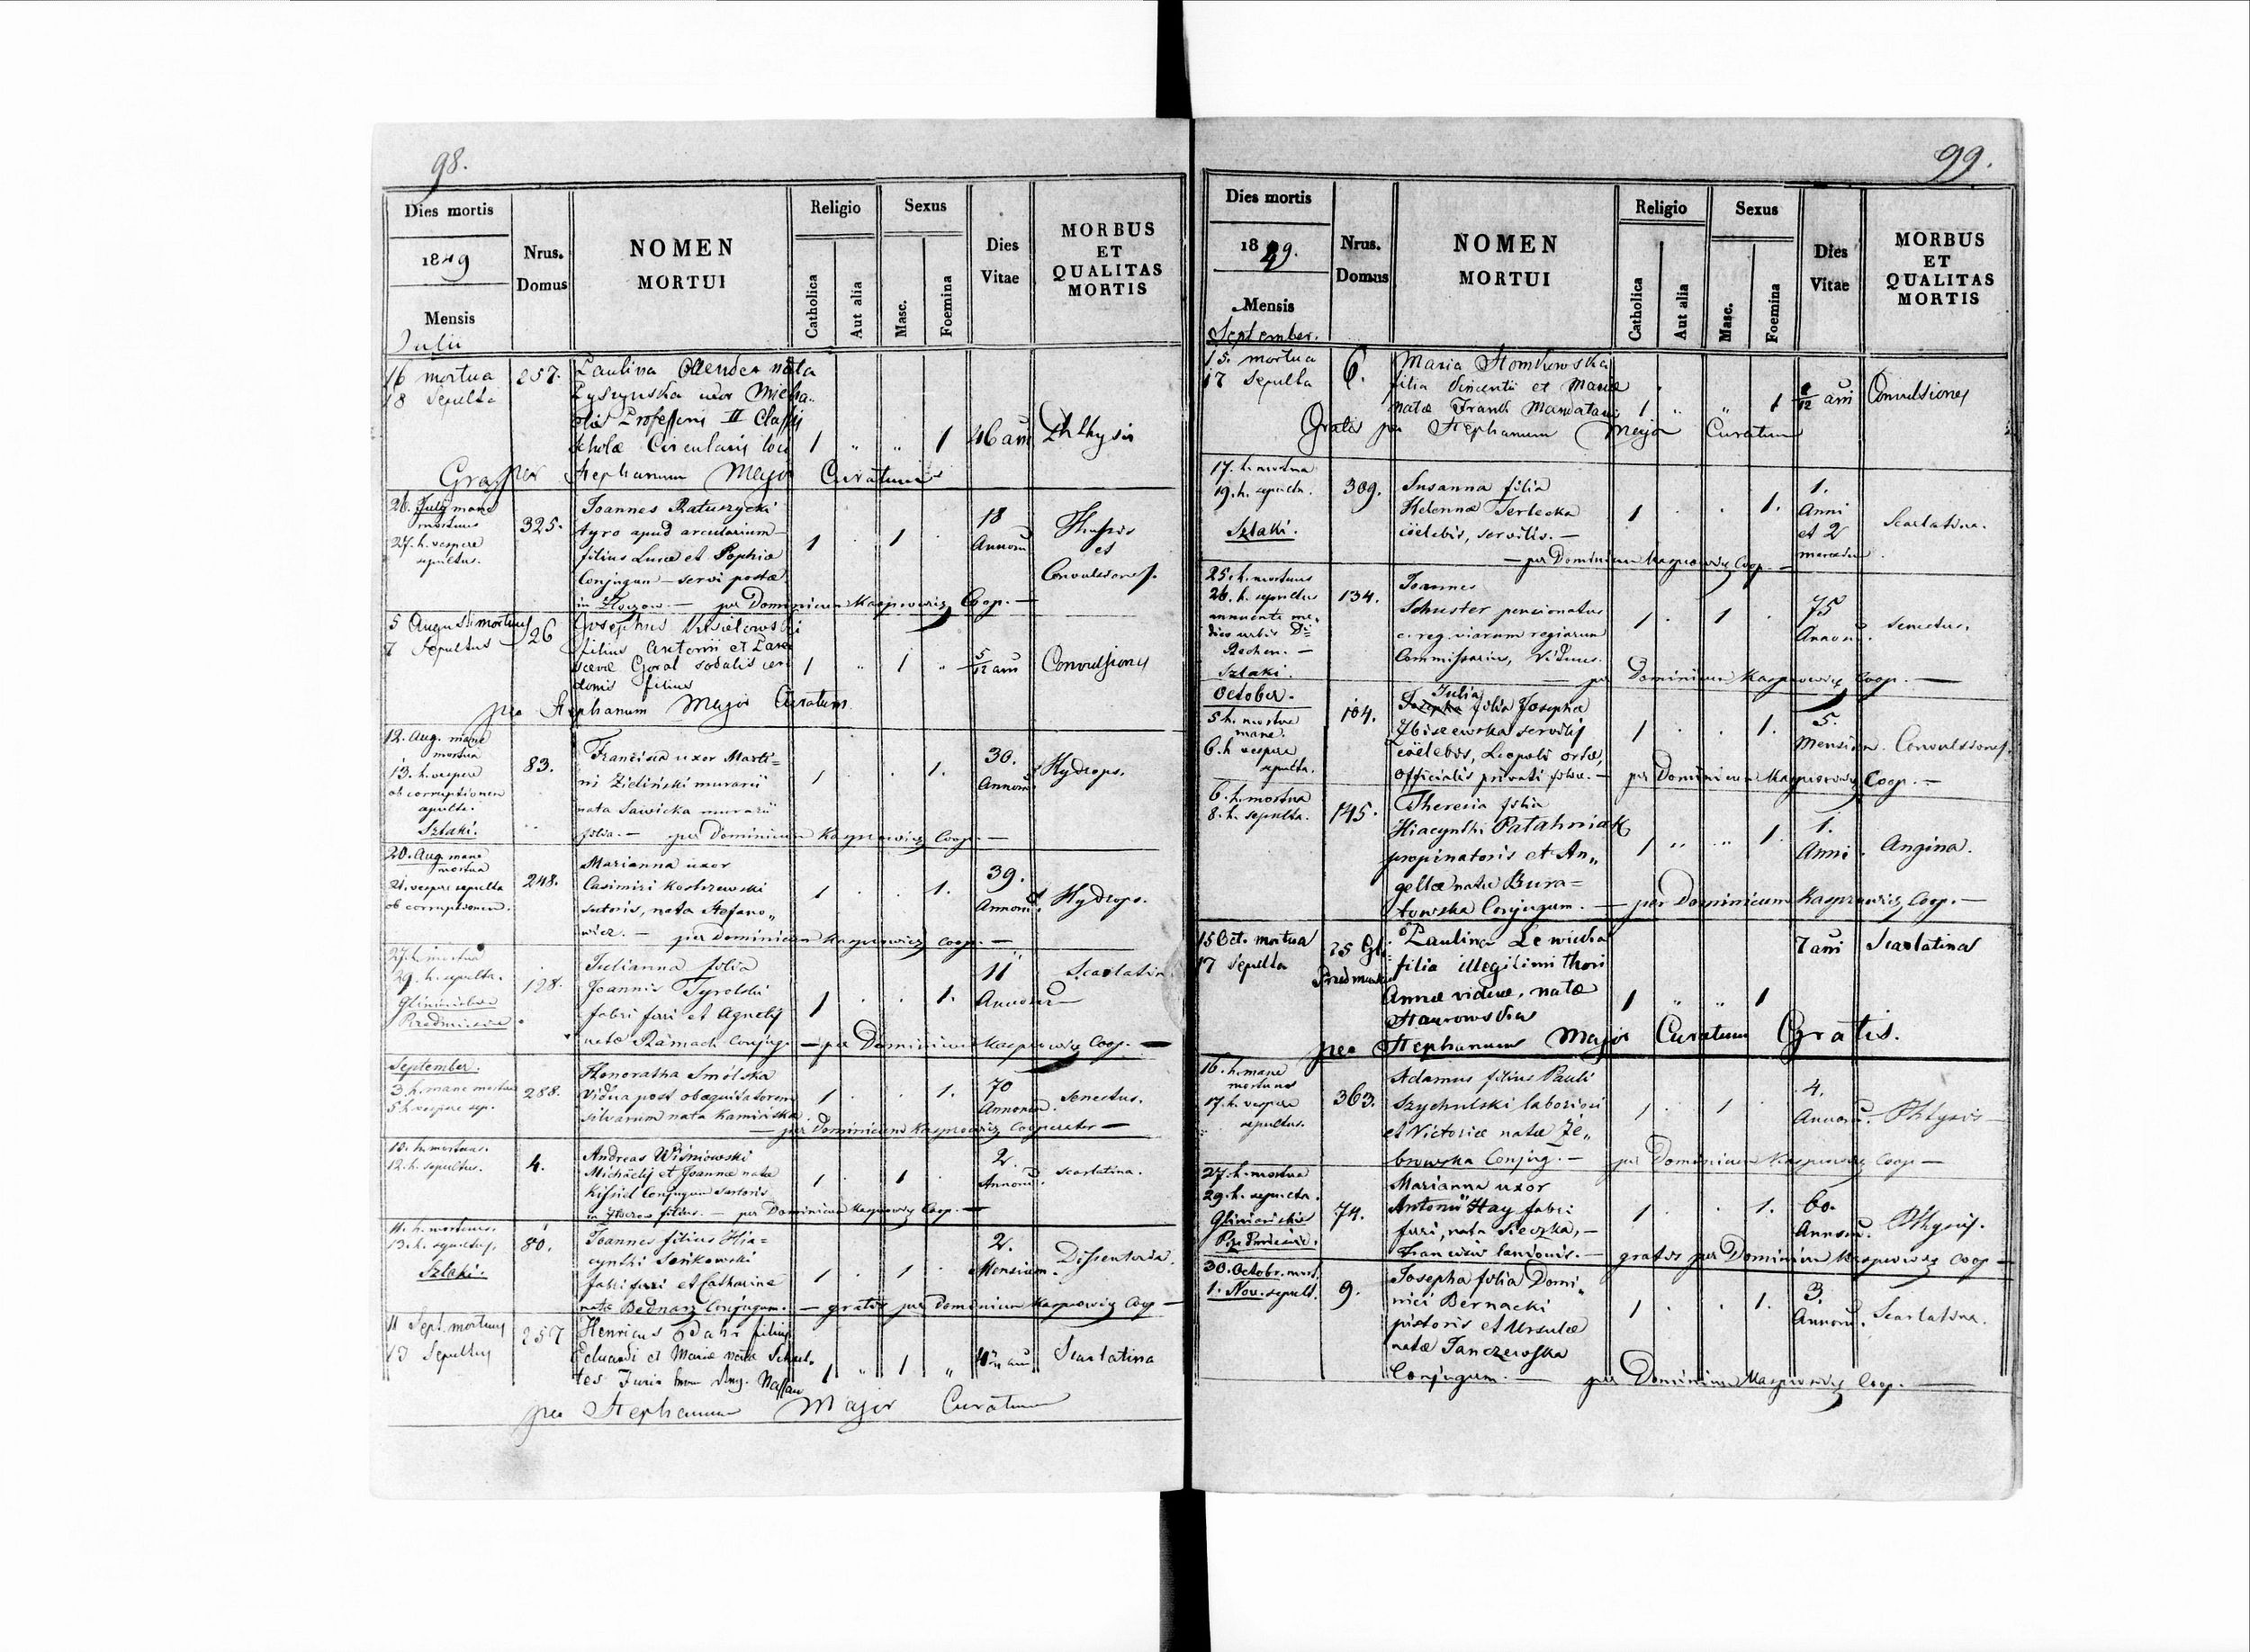 98.
Dies mortis
1849
Mensis
Julii
Nrus.
Domus
NOMEN
MORTUI
Religio
Catholica
Aut alia
Sexus
Masc.
Foemina
Dies
Vitae
MORBUS
ET
QUALITAS
MORTIS
16 mortua
18 Sepulta
257.
Paulina nata
uxor Micha
Professoris II Classis
scholæ Circularis
1 " " 1
46
Phthysis
per Stephanum Major Curatum
26. Julij mane
mortuus
27. h. vespere
sepultus.
325.
Joannes Ratuszycki
tyro apud arcularium
filius Lucæ et Sophiæ
Conjugum – servi postæ
in Złoczow. – per Dominicum Kasprowicz Coop. –
1 . 1 .
18
Annorum
et
Convulsiones.
5 Augusti mortuus
7 Sepultus
26
Josephus
filius Antonii et
Goral sodalis
filius
1 " 1 "
5/12
Convulsiones
per Stephanum Major Curatum
12. Aug. mane
mortua
13. h. vespere
ob corruptionem
sepulta.
Szlaki.
83.
Francisca uxor Marti=
ni Zieliński murarii
nata Sawicka murarii
filia. – per Dominicum Kasprowicz Coop. –
1 . . 1.
30.
Annorum
Hydrops.
20. Aug. mane
mortua
21. vespere sepulta
ob corruptionem.
248.
Marianna uxor
Casimiri Kostrzewski
sutoris, nata Stefano„
wicz. – per Dominicum Kasprowicz Coop. –
1 . . 1.
39.
Annorum.
Hydrops.
27. h. mortua
29. h. sepulta.
Gliniańskie
Przedmieście
128.
Julianna filia
Joannis Tyrolski
fabri fari et Agnetis
natæ Ramach Conjug. – per Dominicum Kasprowicz Coop. –
1 . . 1.
11
Annorum
Scarlatin
September.
3. h. mane mortua
5 h. vespere sep.
288.
Honoratha Smólska
Vidua post
silvarum nata Kamińska.
– per Dominicum Kasprowicz Cooperator –
1 . . 1.
70
Annorum.
Senectus.
10. h. mortuus.
12. h. sepultus.
4.
Andreas Wiśniowski
Michaelis et Joannæ natæ
Conjugum Sartoris
in filius. – per Dominicum Kasprowicz Coop. –
1 . 1 .
2.
Annorum.
Scarlatina.
11. h. mortuus.
13. h. sepultus.
Szlaki.
80.
Joannes filius Hia=
cynthi Seńkowski
fabri fari et Catharinæ
natæ Bednarz Conjugum. – gratis per Dominicum Kasprowicz Coop –
1 . 1 .
2.
Mensium.
Dissenteria.
11 Sept. mortuus
13 Sepultus
257
Henricus filius
Eduardi et Mariæ natæ
Nassau
1 " 1 "
Scarlatina
per Stephanum Major Curatum
99.
Dies mortis
1849.
Mensis
September.
Nrus.
Domus
NOMEN
MORTUI
Religio
Catholica
Aut alia
Sexus
Masc.
Foemina
Dies
Vitae
MORBUS
ET
QUALITAS
MORTIS
15. mortua
17 Sepulta
6.
Maria
filia Vincentii et Mariæ
natæ
1 " " 1
Convulsiones
Gratis per Stephanum Major Curatum
17. h. mortua
19. h. sepulta.
Szlaki.
309.
Susanna filia
Helennæ Terlecka
cœlebis, servilis. –
– per Dominicum Kasprowicz Coop. –
1 . . 1.
1.
Anni
et 2
mensium.
Scarlatina.
25. h. mortuus
26. h. sepultus
annuente me„
dico urbis
Szlaki.
134.
Joannes
Schuster pensionatus
c. reg. viarum regiarum
Commissarius, Viduus.
– per Dominicum Kasprowicz Coop. –
1 . 1 .
75
Annorum.
Senectus.
October.
5 h. mortua
mane.
6. h. vespere
sepulta.
104.
Julia
filia Josephæ
servilis
cœlebis, Leopoli ortæ,
Officialis privati filiæ. – per Dominicum Kasprowicz Coop. –
1 . . 1.
5.
Mensium.
Convulsiones.
6. h. mortua
8. h. sepulta.
145.
Theresia filia
Hiacynthi Patahniak
propinatoris et An„
gellæ natæ Bura=
towska Conjugum. – per Dominicum Kasprowicz Coop. –
1 " " 1.
1.
Anni.
Angina.
15 Oct. mortua
17 Sepulta
25 Gli
Paulina Lewicka
filia illegitimi thori
Annæ viduæ, natæ
Staurowska
1 " " 1
7
Scarlatina
per Stephanum Major Curatum Gratis.
16. h. mane
mortuus
17. h. vespere
sepultus.
363.
Adamus filius Pauli
Szychulski laboriosi
et Victoriæ natæ Ze„
browska Conjug. – per Dominicum Kasprowicz Coop –
1 . 1 .
4.
Annorum.
Phtysis
27. h. mortua
29. h. sepulta.
Gliniańskie
Przedmieście.
74.
Marianna uxor
Antonii Hay fabri
fari, nata Sieczka, –
Francisci lanionis. – gratis per Dominicum Kasprowicz Coop –
1 . . 1.
60.
Annorum.
Phtysis.
30. Octobr. mort.
1. Nov. sepult.
9.
Josepha filia Domi„
nici Bernacki
pistoris et Ursulæ
natæ Janczewska
Conjugum. – per Dominicum Kasprowicz Coop. –
1 . . 1.
3.
Annorum.
Scarlatina.